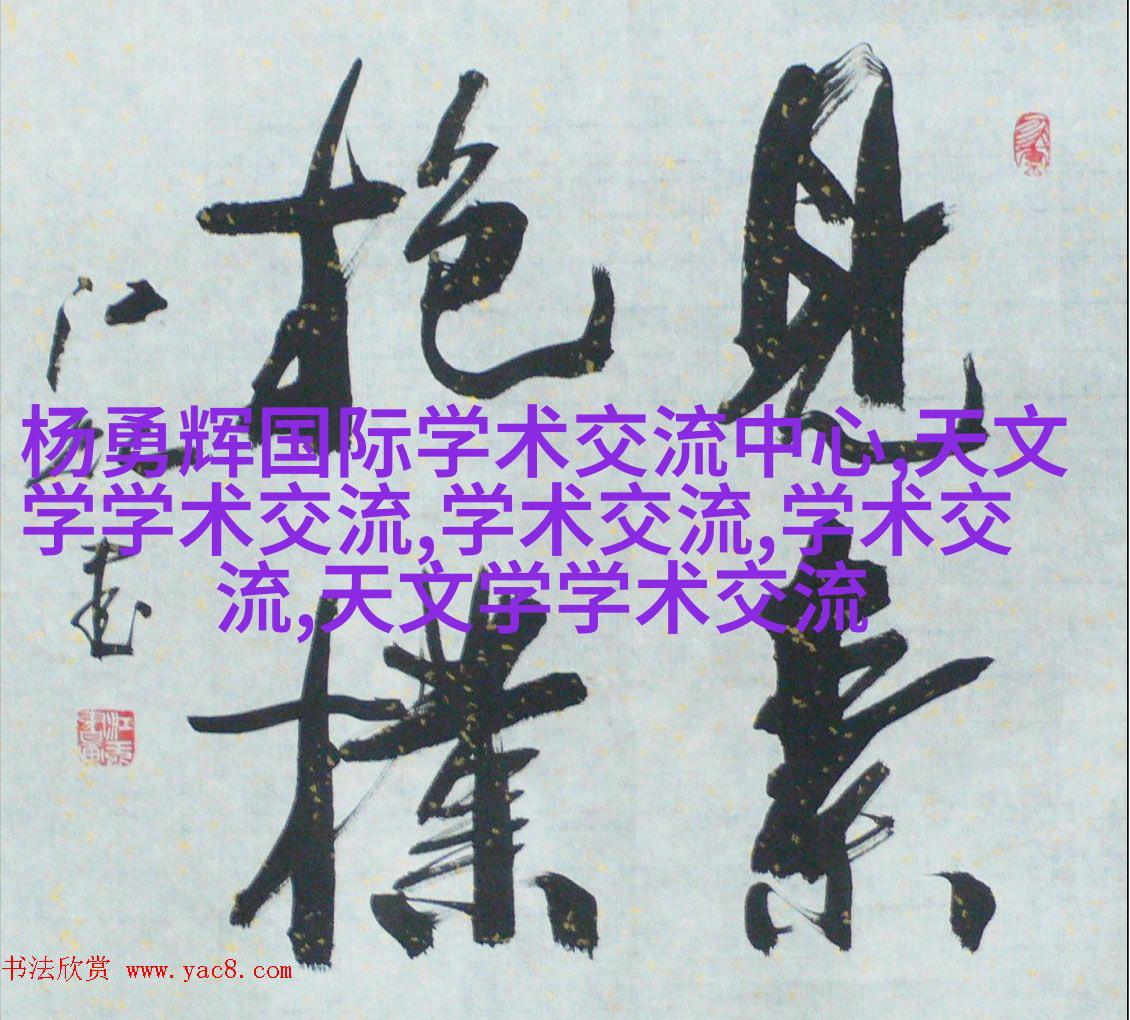 見素
抱樸
杨勇辉国际学术交流中心,天文
学学术交流,学术交流,学术交
流,天文学学术交流
书法欣赏 www.yac8.com